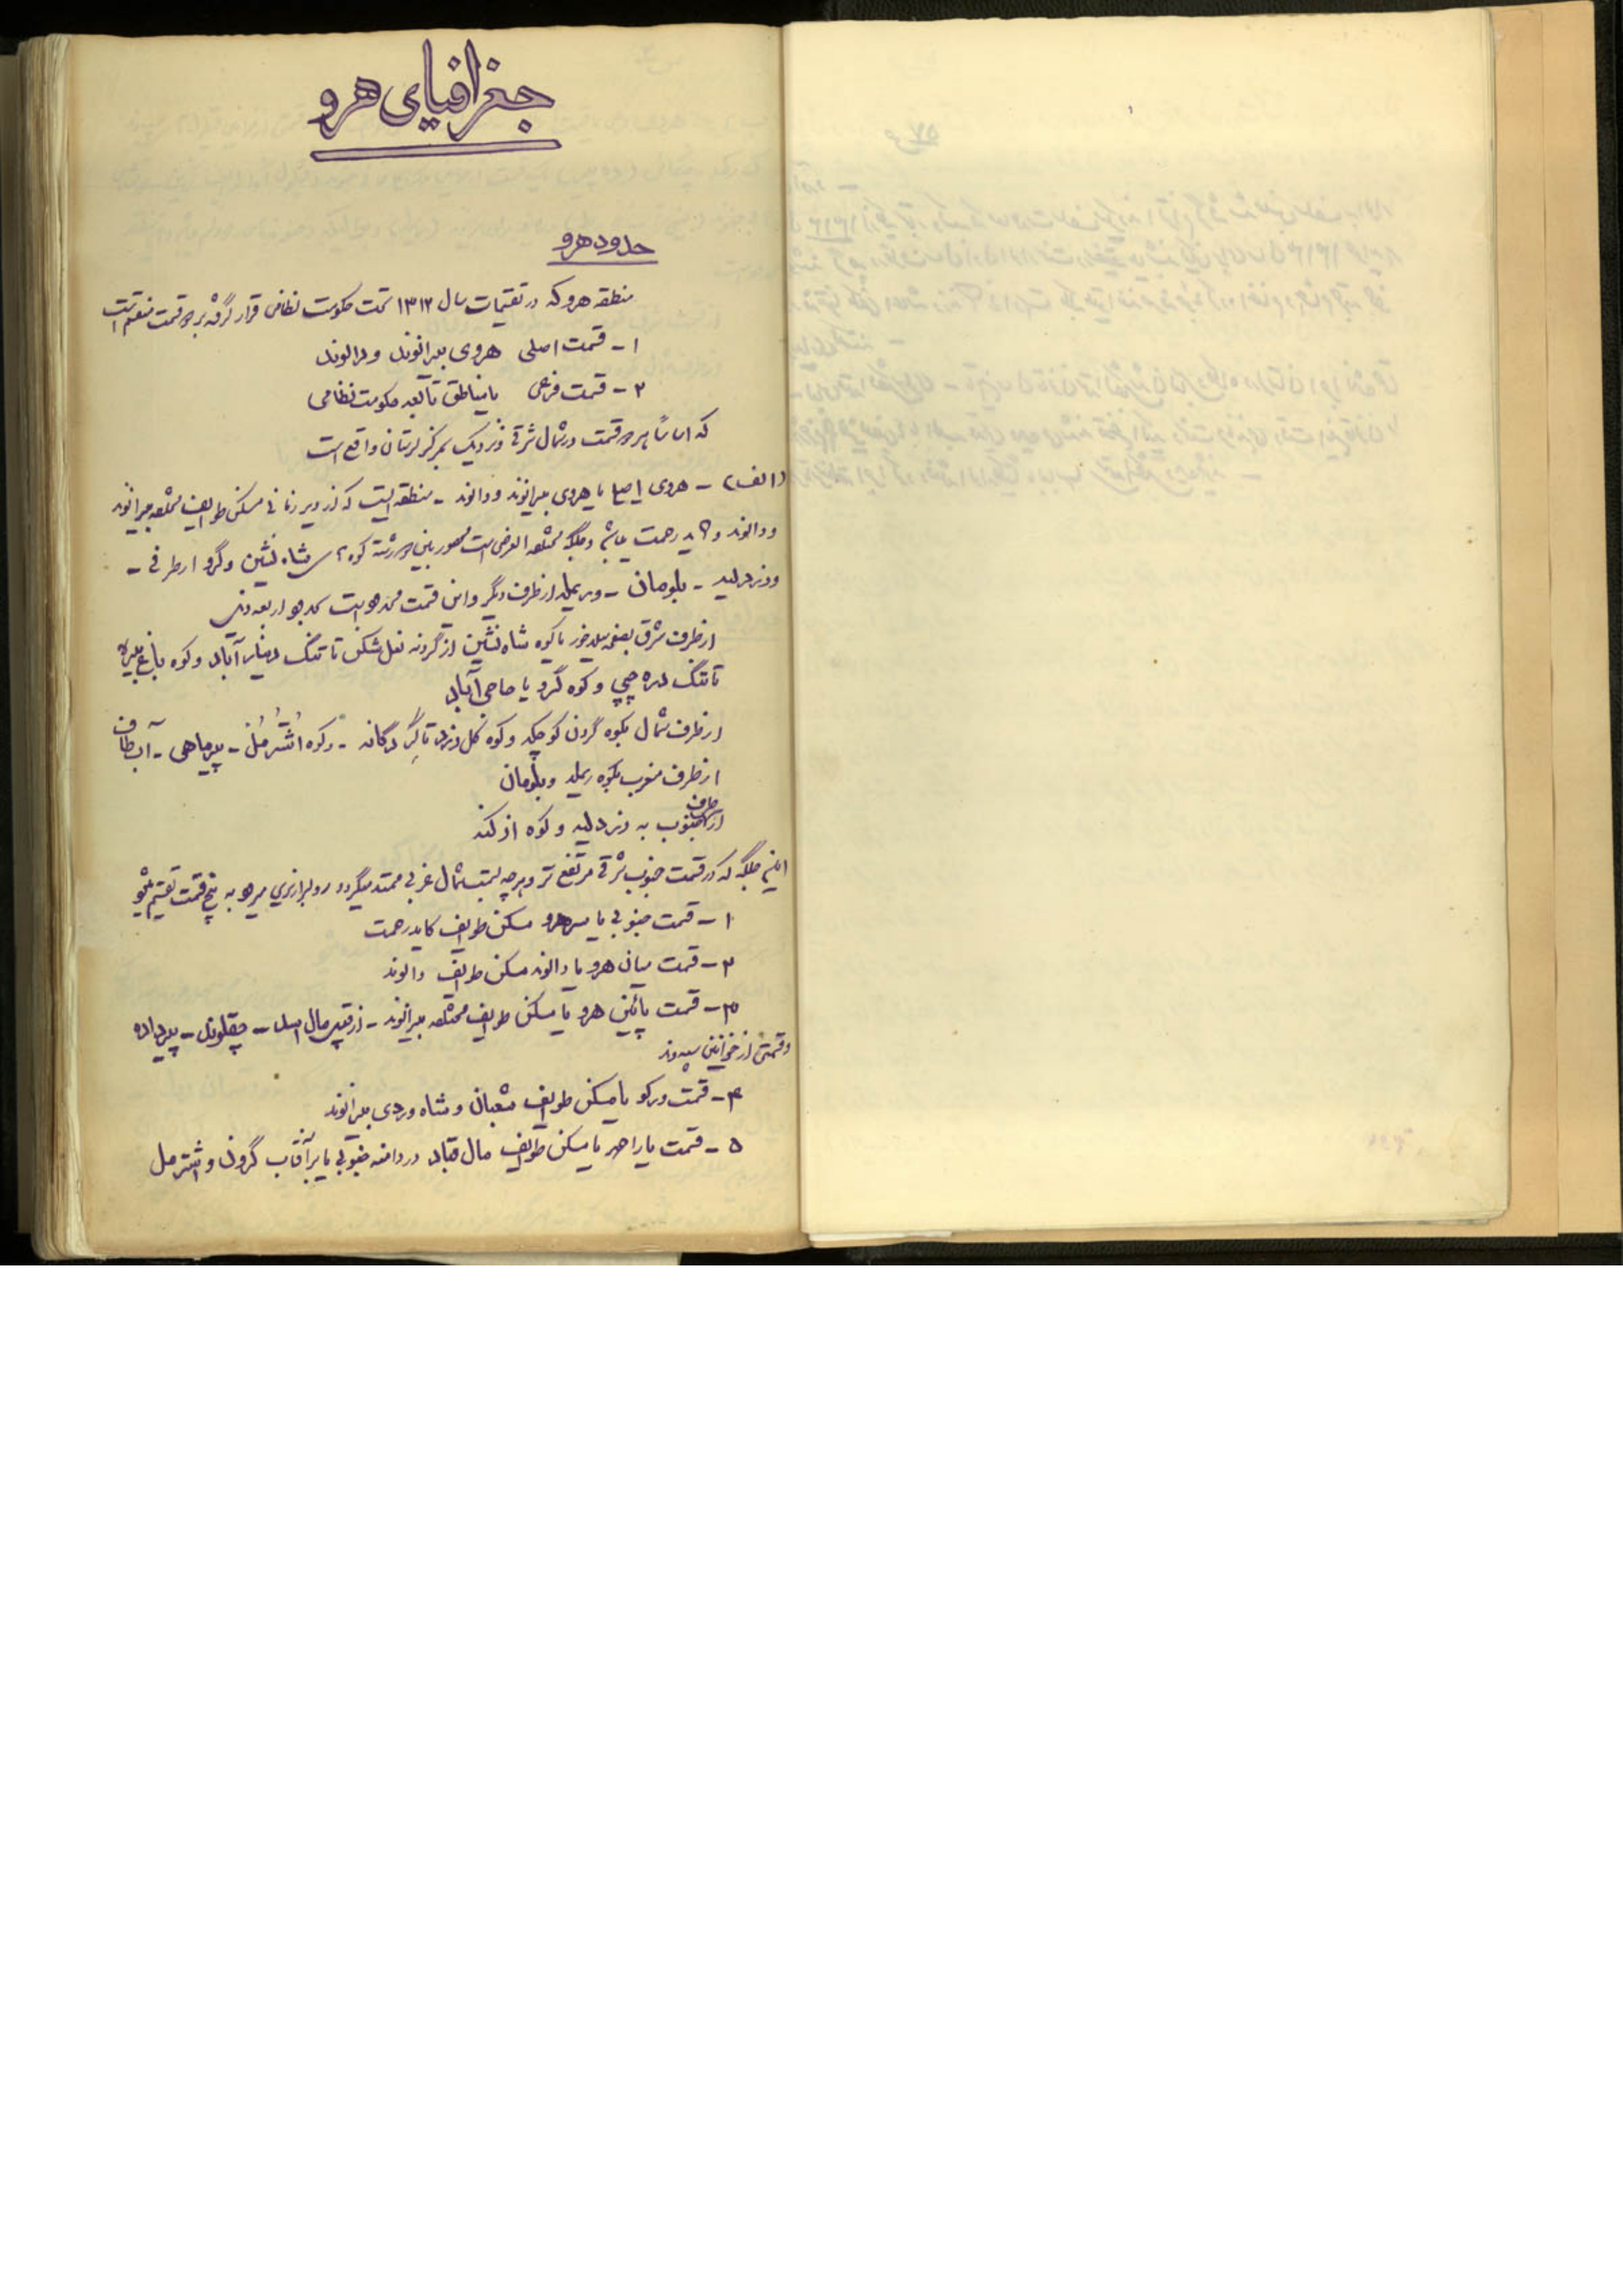 جغرافیای هرو
حدود هرو
منطقه هرو که در تقسیمات سال ۱۳۱۲ تحت حکومت نظامی قرار گرفته بر دو قسمت منقسم است
۱ - قسمت اصلی هروی بیرانوند و دالوند
۲ - قسمت فرعی یا مناطق تابعه حکومت نظامی
که اساساً هر دو قسمت در شمال شرقی و نزدیک بمرکز لرستان واقع است
(الف) - هروی اصلی یا هروی بیرانوند و دالوند - منطقه ایست که از دیر زمانی مسکن طوایف مختلفه بیرانوند
و دالوند و کاید رحمت میباشد و جلگه مختلف العرضی است محصور بین دو رشته کوه شاه نشین و گرو از طرفی -
و دلیه - بلوهان - و ریمله از طرف دیگر و این قسمت محدود است بحدود اربعه ذیل
از طرف شرق بصفحه سیلاخور یا کوه شاه نشین از گردنه نعل شکن تا تنگ دینار آباد و کوه باغ
تا تنگ دره چپی و کوه گرو یا حاجی آباد
از طرف شمال بکوه گردن کوچکه و کوه کل دزد تا گر گانه - و کوه اشترمل - پیرماهی - آب طاف
از طرف مغرب بکوه ریمله و بلوهان
از طرف جنوب به دلیه و کوه ازکنه
این جلگه که در قسمت جنوب شرقی مرتفع تر و هرچه بسمت شمال غربی ممتد میگردد رو بسرازیری میرود به پنج قسمت تقسیم میشود
۱ - قسمت جنوبی یا سر هرو مسکن طوایف کاید رحمت
۲ - قسمت میان هرو یا دالوند مسکن طوایف دالوند
۳ - قسمت پائین هرو یا مسکن طوایف مختلفه بیرانوند - از قبیل مال اسد - چقلوند - پیرداده
و قسمتی از خوانین سپه وند
۴ - قسمت ورکو یا مسکن طوایف شعبان و شاه وردی بیرانوند
۵ - قسمت یاراحمد یا مسکن طوایف مال قباد در دامنه جنوبی یا برآفتاب گرون و اشترمل